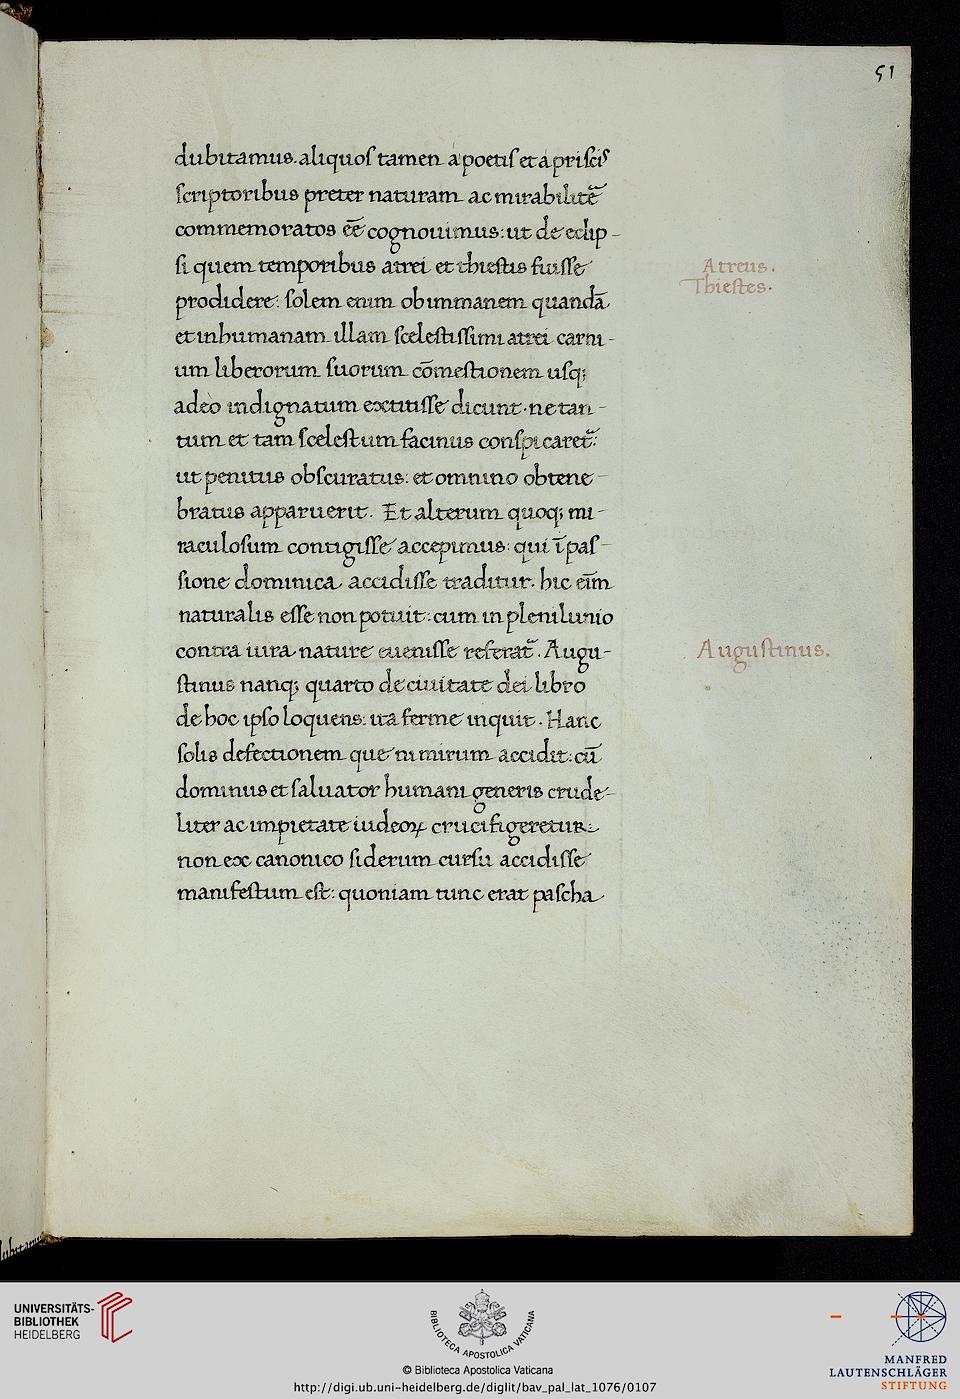 51
dubitamus. aliquos tamen a poetis et a priscis
scriptoribus preter naturam ac mirabilitē
commemoratos eē cognouimus: ut de eclip-
si quem temporibus atrei et thiestis fuisse
Atreus.
Thiestes.
prodidere: solem enim ob immanem quandā
et inhumanam illam scelestissimi atrei carni-
um liberorum suorum cōmestionem usq;
adeo indignatum extitisse dicunt. ne tan-
tum et tam scelestum facinus conspicaret᷑:
ut penitus obscuratus: et omnino obtene-
bratus apparuerit. Et alterum quoq; mi-
raculosum contigisse accepimus: qui ī pas-
sione dominica accidisse traditur. hic eīm
naturalis esse non potuit: cum in plenilunio
contra iura nature euenisse referat᷑. Augu-
Augustinus.
stinus nanq; quarto de ciuitate dei libro
de hoc ipso loquens: ita ferme inquit. Hanc
solis defectionem que nimirum accidit: cū
dominus et saluator humani generis crude-
liter ac impietate iudeoꝝ crucifigeretur:
non ex canonico siderum cursu accidisse
manifestum est: quoniam tunc erat pascha
UNIVERSITÄTS-
BIBLIOTHEK
HEIDELBERG
BIBLIOTECA APOSTOLICA VATICANA
© Biblioteca Apostolica Vaticana
http://digi.ub.uni-heidelberg.de/diglit/bav_pal_lat_1076/0107
MANFRED
LAUTENSCHLÄGER
STIFTUNG